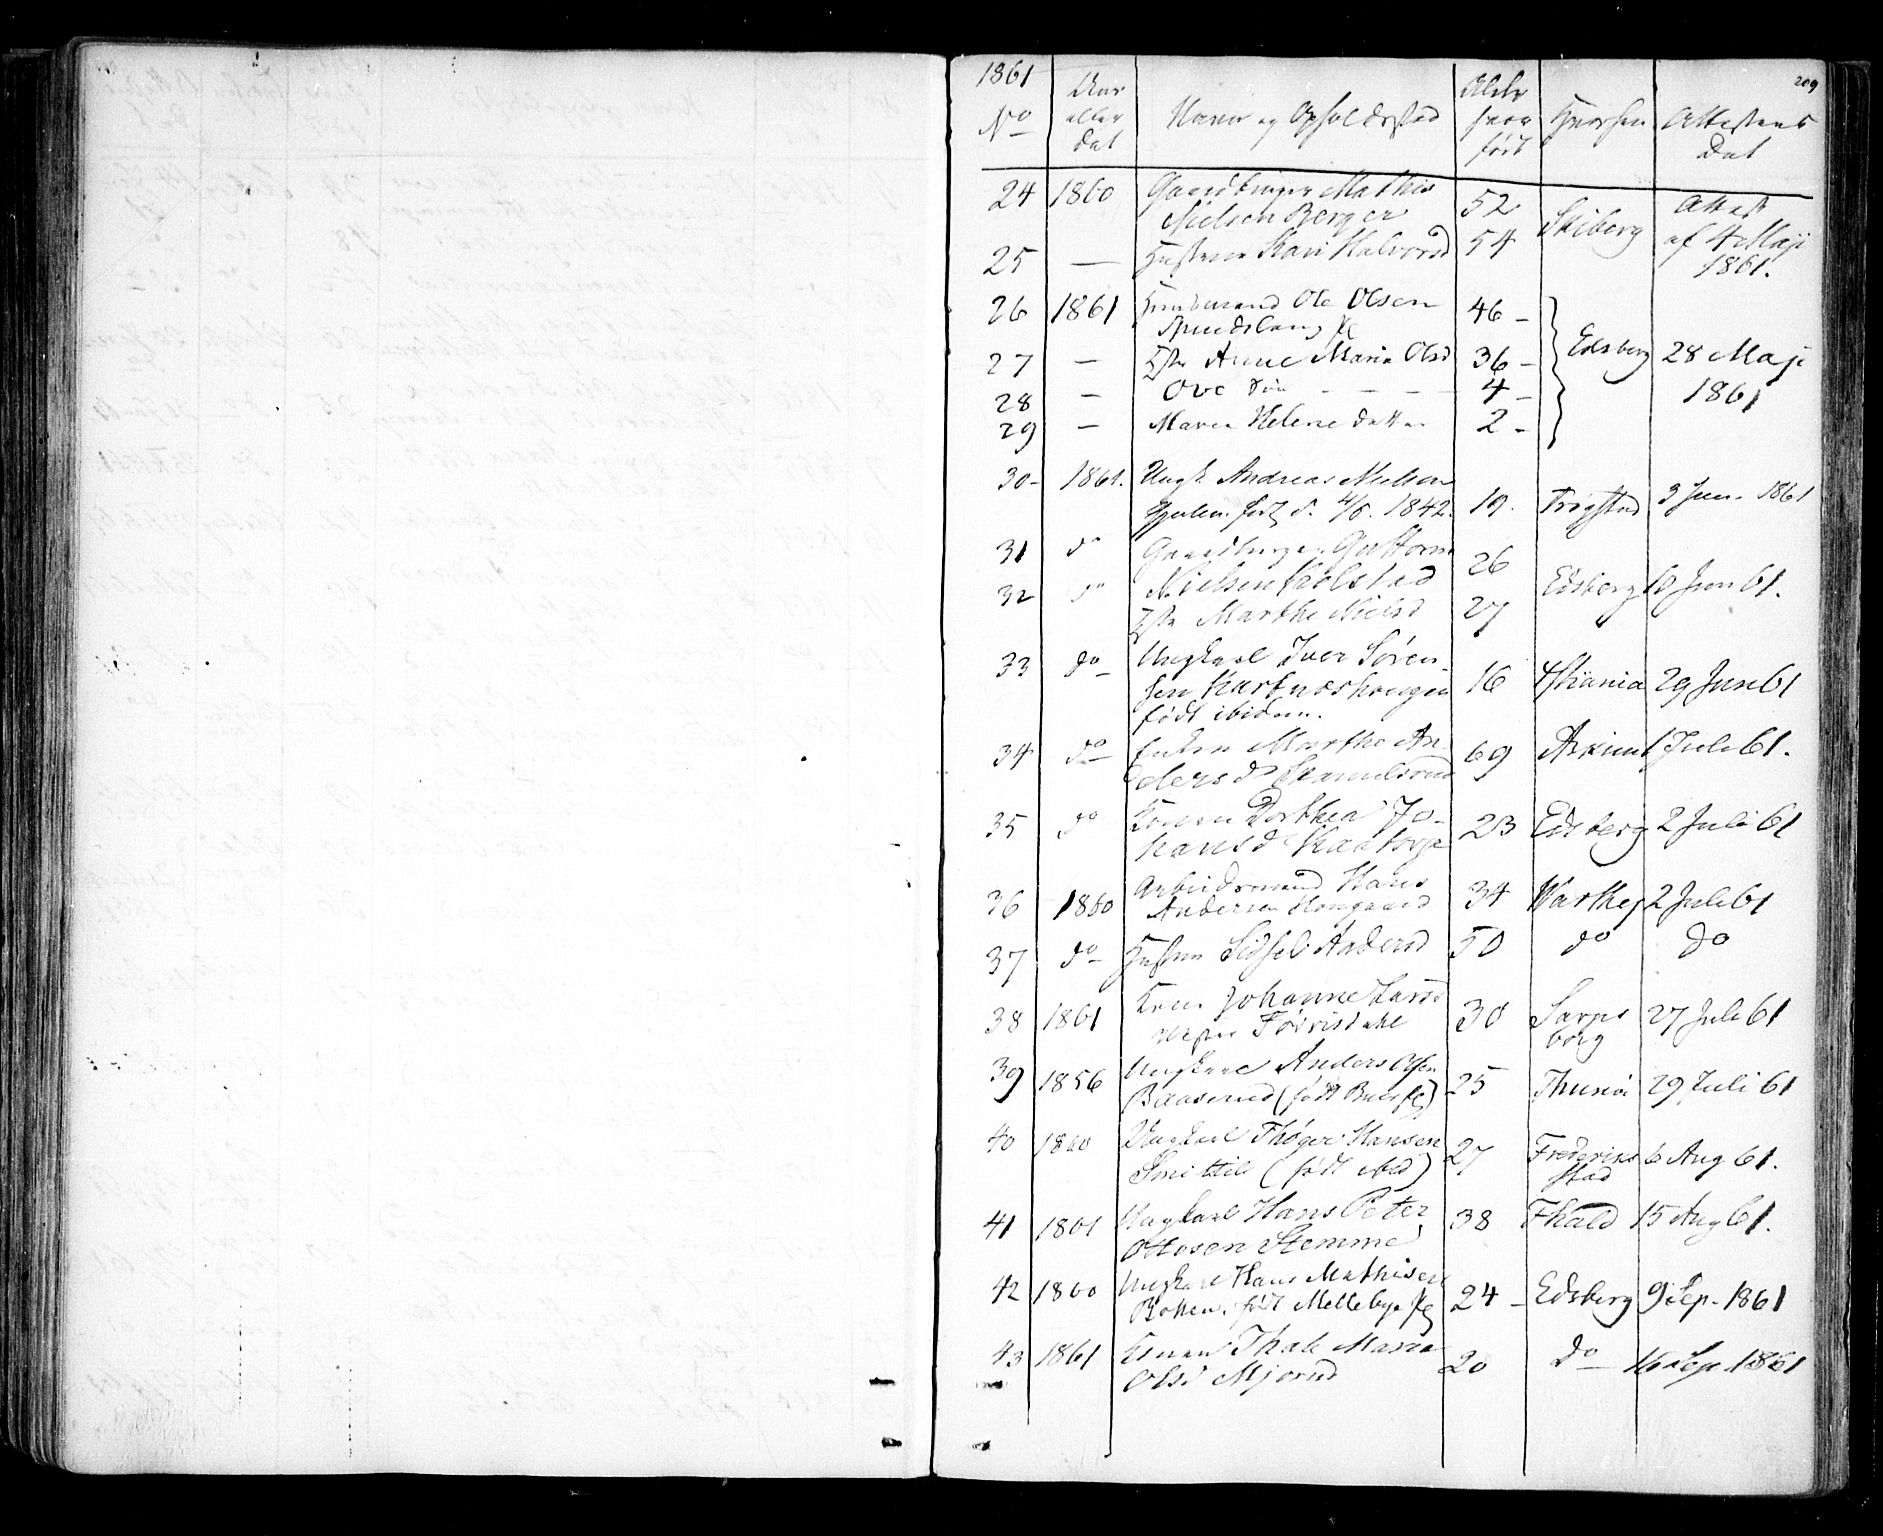 1861
209
No
Aar eller dat
Navn og Opholdssted
Alder hvor født
Hvorfra
Attestens Dat
24 1860 Gaardbruger Mathis
Nielsen Berger 52
25 — Hustrue Kari Halvorsd 54 Skiberg Attest af 4 Maji 1861.
26 1861 Huusmand Ole Olsen 46 –
27 — Hstr Anne Maria Olsd 36 – Edsberg 28 Maji 1861
28 — Ove Søn – – – 4 –
29 — Maren Helene datter 2 –
30 – 1861. Ungk. Andreas Nielsen
født d. 4/6. 1842. 19. Trøgstad 3 Juni 1861
31 do Gaardbruger Guttorm
Nielsen Kolstad 26
32 do Hstr Marthe Nielsd 27 Edsberg 10 Juni 61.
33 do Ungkarl Iver Søren-
sen
født ibidem. 16 Xstiania 29 Juni 61
34 do Enken Marthe An-
dersd 69 Askim 1 Juli 61.
35 do Konen Dorthea Jo-
hansd 23 Edsberg 2 Juli 61
36 1860 Arbeidsmand Hans
Andersen 34 Warthey 2 Juli 61
37 do Hustru Sidsel Andersd 50 do do
38 1861 Kone Johanne Larsd
30 Sarps
borg 27 Juli 61
39 1856 Ungkarl Anders Olsen
Baaserud (født 25 Thunø 29 Juli 61
40 1860 Ungkarl Thøger Hansen
(født ibid) 27 Frederiks
stad 6 Aug 61.
41 1861 Ungkarl Hans Peter
Ottosen Stemme 38 Fhald 15 Aug 61.
42 1860 Ungkarl Hans Mathisen
født Mellebye 24 – Edsberg 9 Sep. 1861
43 1861 Konen Thale Maria
Olsd Mjørud 20 do 16 Sep. 1861